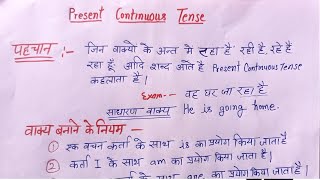 Present Continuous Tense
पहचान :- जिन वाक्यो के अन्त मे रहा है रही है, रहे है
रहा हूँ आदि शब्द आते है Present Continuous Tense
कहलाता है।
Exam:- वह घर जा रहा है
साधारण वाक्य He is going home.
वाक्य बनाने के नियम:-
① एक वचन कर्ता के साथ is का प्रयोग किया जाता है
② कर्ता I के साथ am का प्रयोग किया जाता है।
के साथ are का प्रयोग किया जाता है